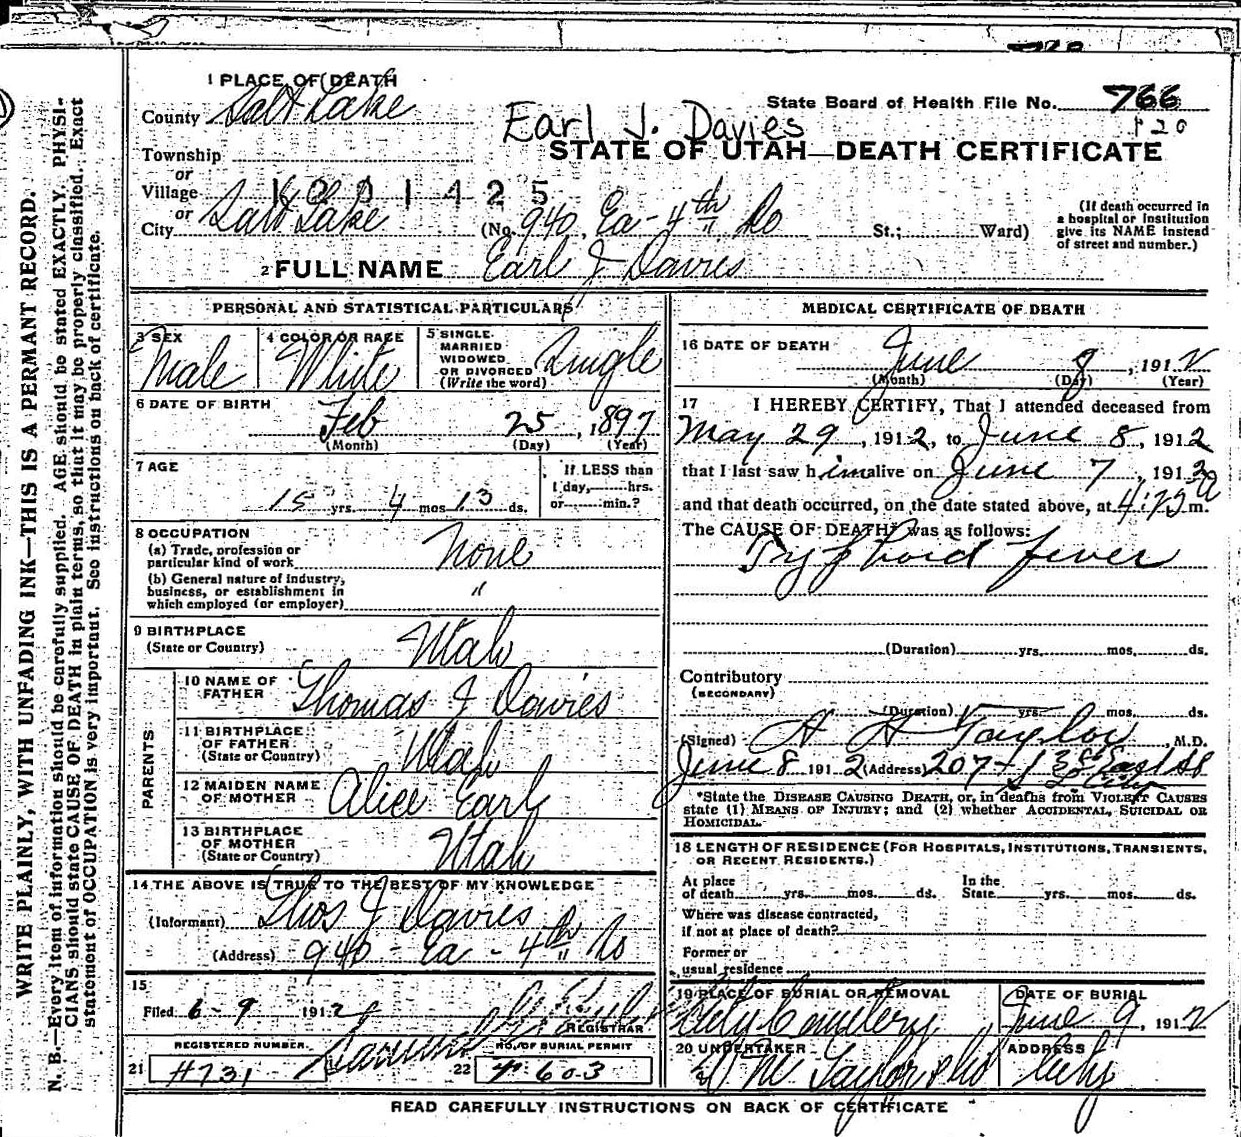 1 PLACE OF DEATH
County Salt Lake
State Board of Health File No. 766
120
Earl J. Davies
STATE OF UTAH—DEATH CERTIFICATE
Township
or
Village
or
City Salt Lake (No. 940 Ea - 4th So St.; Ward)
(If death occurred in a hospital or institution give its NAME instead of street and number.)
2 FULL NAME Earl J Davies
PERSONAL AND STATISTICAL PARTICULARS
3 SEX Male
4 COLOR OR RACE White
5 SINGLE MARRIED WIDOWED OR DIVORCED (Write the word) Single
6 DATE OF BIRTH Feb 25, 1897
(Month) (Day) (Year)
7 AGE
15 yrs. 4 mos 13 ds.
If LESS than
1 day, hrs.
or min.?
8 OCCUPATION
(a) Trade, profession or
particular kind of work None
(b) General nature of industry,
business, or establishment in
which employed (or employer) "
9 BIRTHPLACE
(State or Country) Utah
PARENTS
10 NAME OF FATHER Thomas J Davies
11 BIRTHPLACE OF FATHER (State or Country) Utah
12 MAIDEN NAME OF MOTHER Alice Earl
13 BIRTHPLACE OF MOTHER (State or Country) Utah
14 THE ABOVE IS TRUE TO THE BEST OF MY KNOWLEDGE
(Informant) Thos J Davies
(Address) 940 - Ea - 4th So
15
Filed 6-9 1912
REGISTRAR
REGISTERED NUMBER
21 #731
NO. OF BURIAL PERMIT
22 603
MEDICAL CERTIFICATE OF DEATH
16 DATE OF DEATH June 8, 1912
(Month) (Day) (Year)
17 I HEREBY CERTIFY, That I attended deceased from
May 29, 1912, to June 8, 1912
that I last saw him alive on June 7, 1912
and that death occurred, on the date stated above, at m.
The CAUSE OF DEATH* was as follows:
Typhoid fever
(Duration) yrs. mos. ds.
Contributory
(SECONDARY)
(Duration) yrs. mos. ds.
(Signed) Taylor M.D.
June 8 1912 (Address) 207
*State the DISEASE CAUSING DEATH, or, in deaths from VIOLENT CAUSES
state (1) MEANS OF INJURY; and (2) whether ACCIDENTAL, SUICIDAL OR
HOMICIDAL.
18 LENGTH OF RESIDENCE (FOR HOSPITALS, INSTITUTIONS, TRANSIENTS,
OR RECENT RESIDENTS.)
At place of death yrs. mos. ds. In the State yrs. mos. ds.
Where was disease contracted,
if not at place of death?
Former or
usual residence
19 PLACE OF BURIAL OR REMOVAL City Cemetery
DATE OF BURIAL June 9, 1912
20 UNDERTAKER Taylor
ADDRESS City
READ CAREFULLY INSTRUCTIONS ON BACK OF CERTIFICATE
WRITE PLAINLY, WITH UNFADING INK—THIS IS A PERMANT RECORD.
N. B.—Every item of information should be carefully supplied. AGE should be stated EXACTLY. PHYSI-
CIANS should state CAUSE OF DEATH in plain terms, so that it may be properly classified. Exact
statement of OCCUPATION is very important. See instructions on back of certificate.